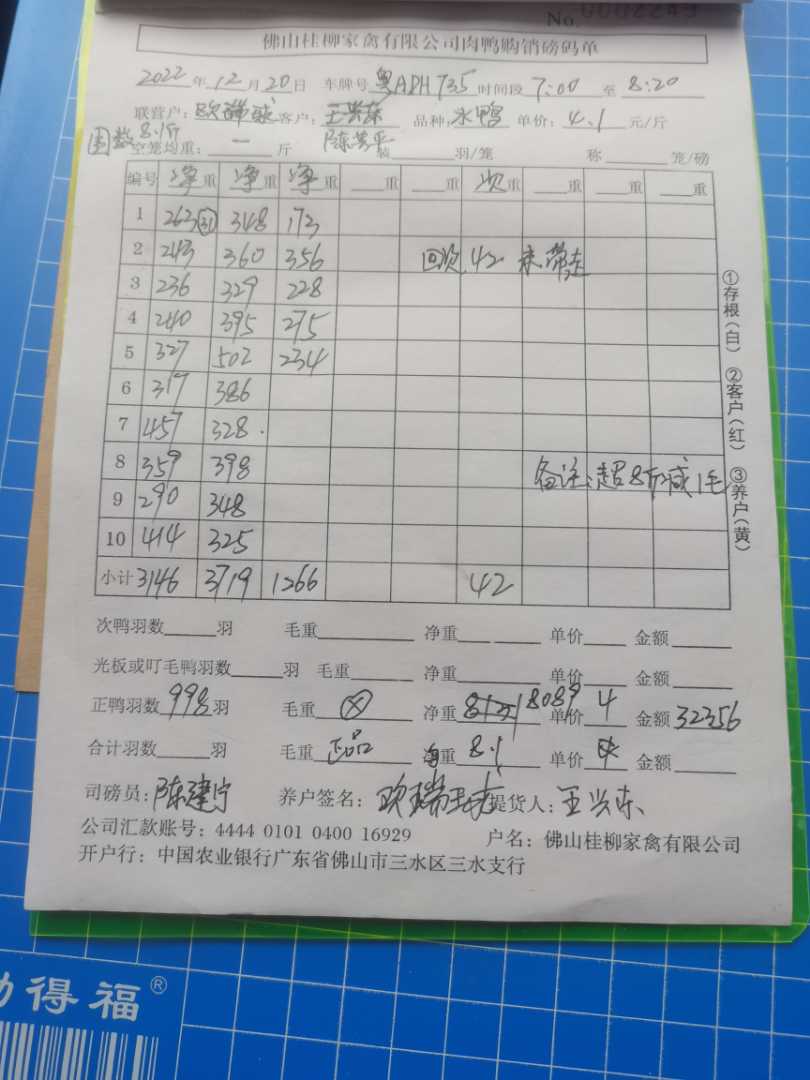 No. 0002249
佛山桂柳家禽有限公司肉鸭购销磅码单
2022年12月20日 车牌号 粤ADH735 时间段 7:00 至 8:20
联营户: 客户: 王兴东 品种: 水鸭 单价: 4.1 元/斤
围数 8.1斤 空笼均重: — 斤 装 羽/笼 称 笼/磅
编号 净重 净重 净重 重 重 次重 重 重 重
1 263 (31) 348 173
2 243 360 356 回次 42 未带走
3 236 329 228
4 240 395 275
5 327 502 234
6 317 386
7 457 328
8 359 398 备注:超8斤减1毛
9 290 348
10 414 325
小计 3146 3719 1266 42
①存根(白) ②客户(红) ③养户(黄)
次鸭羽数 羽 毛重 净重 单价 金额
光板或叮毛鸭羽数 羽 毛重 净重 单价 金额
正鸭羽数 998 羽 毛重 净重 8131 8089 单价 4 金额 32356
合计羽数 羽 毛重 正品 净重 8.1 单价 金额
司磅员: 陈建宁 养户签名: 提货人: 王兴东
公司汇款账号: 4444 0101 0400 16929 户名: 佛山桂柳家禽有限公司
开户行: 中国农业银行广东省佛山市三水区三水支行
得福®